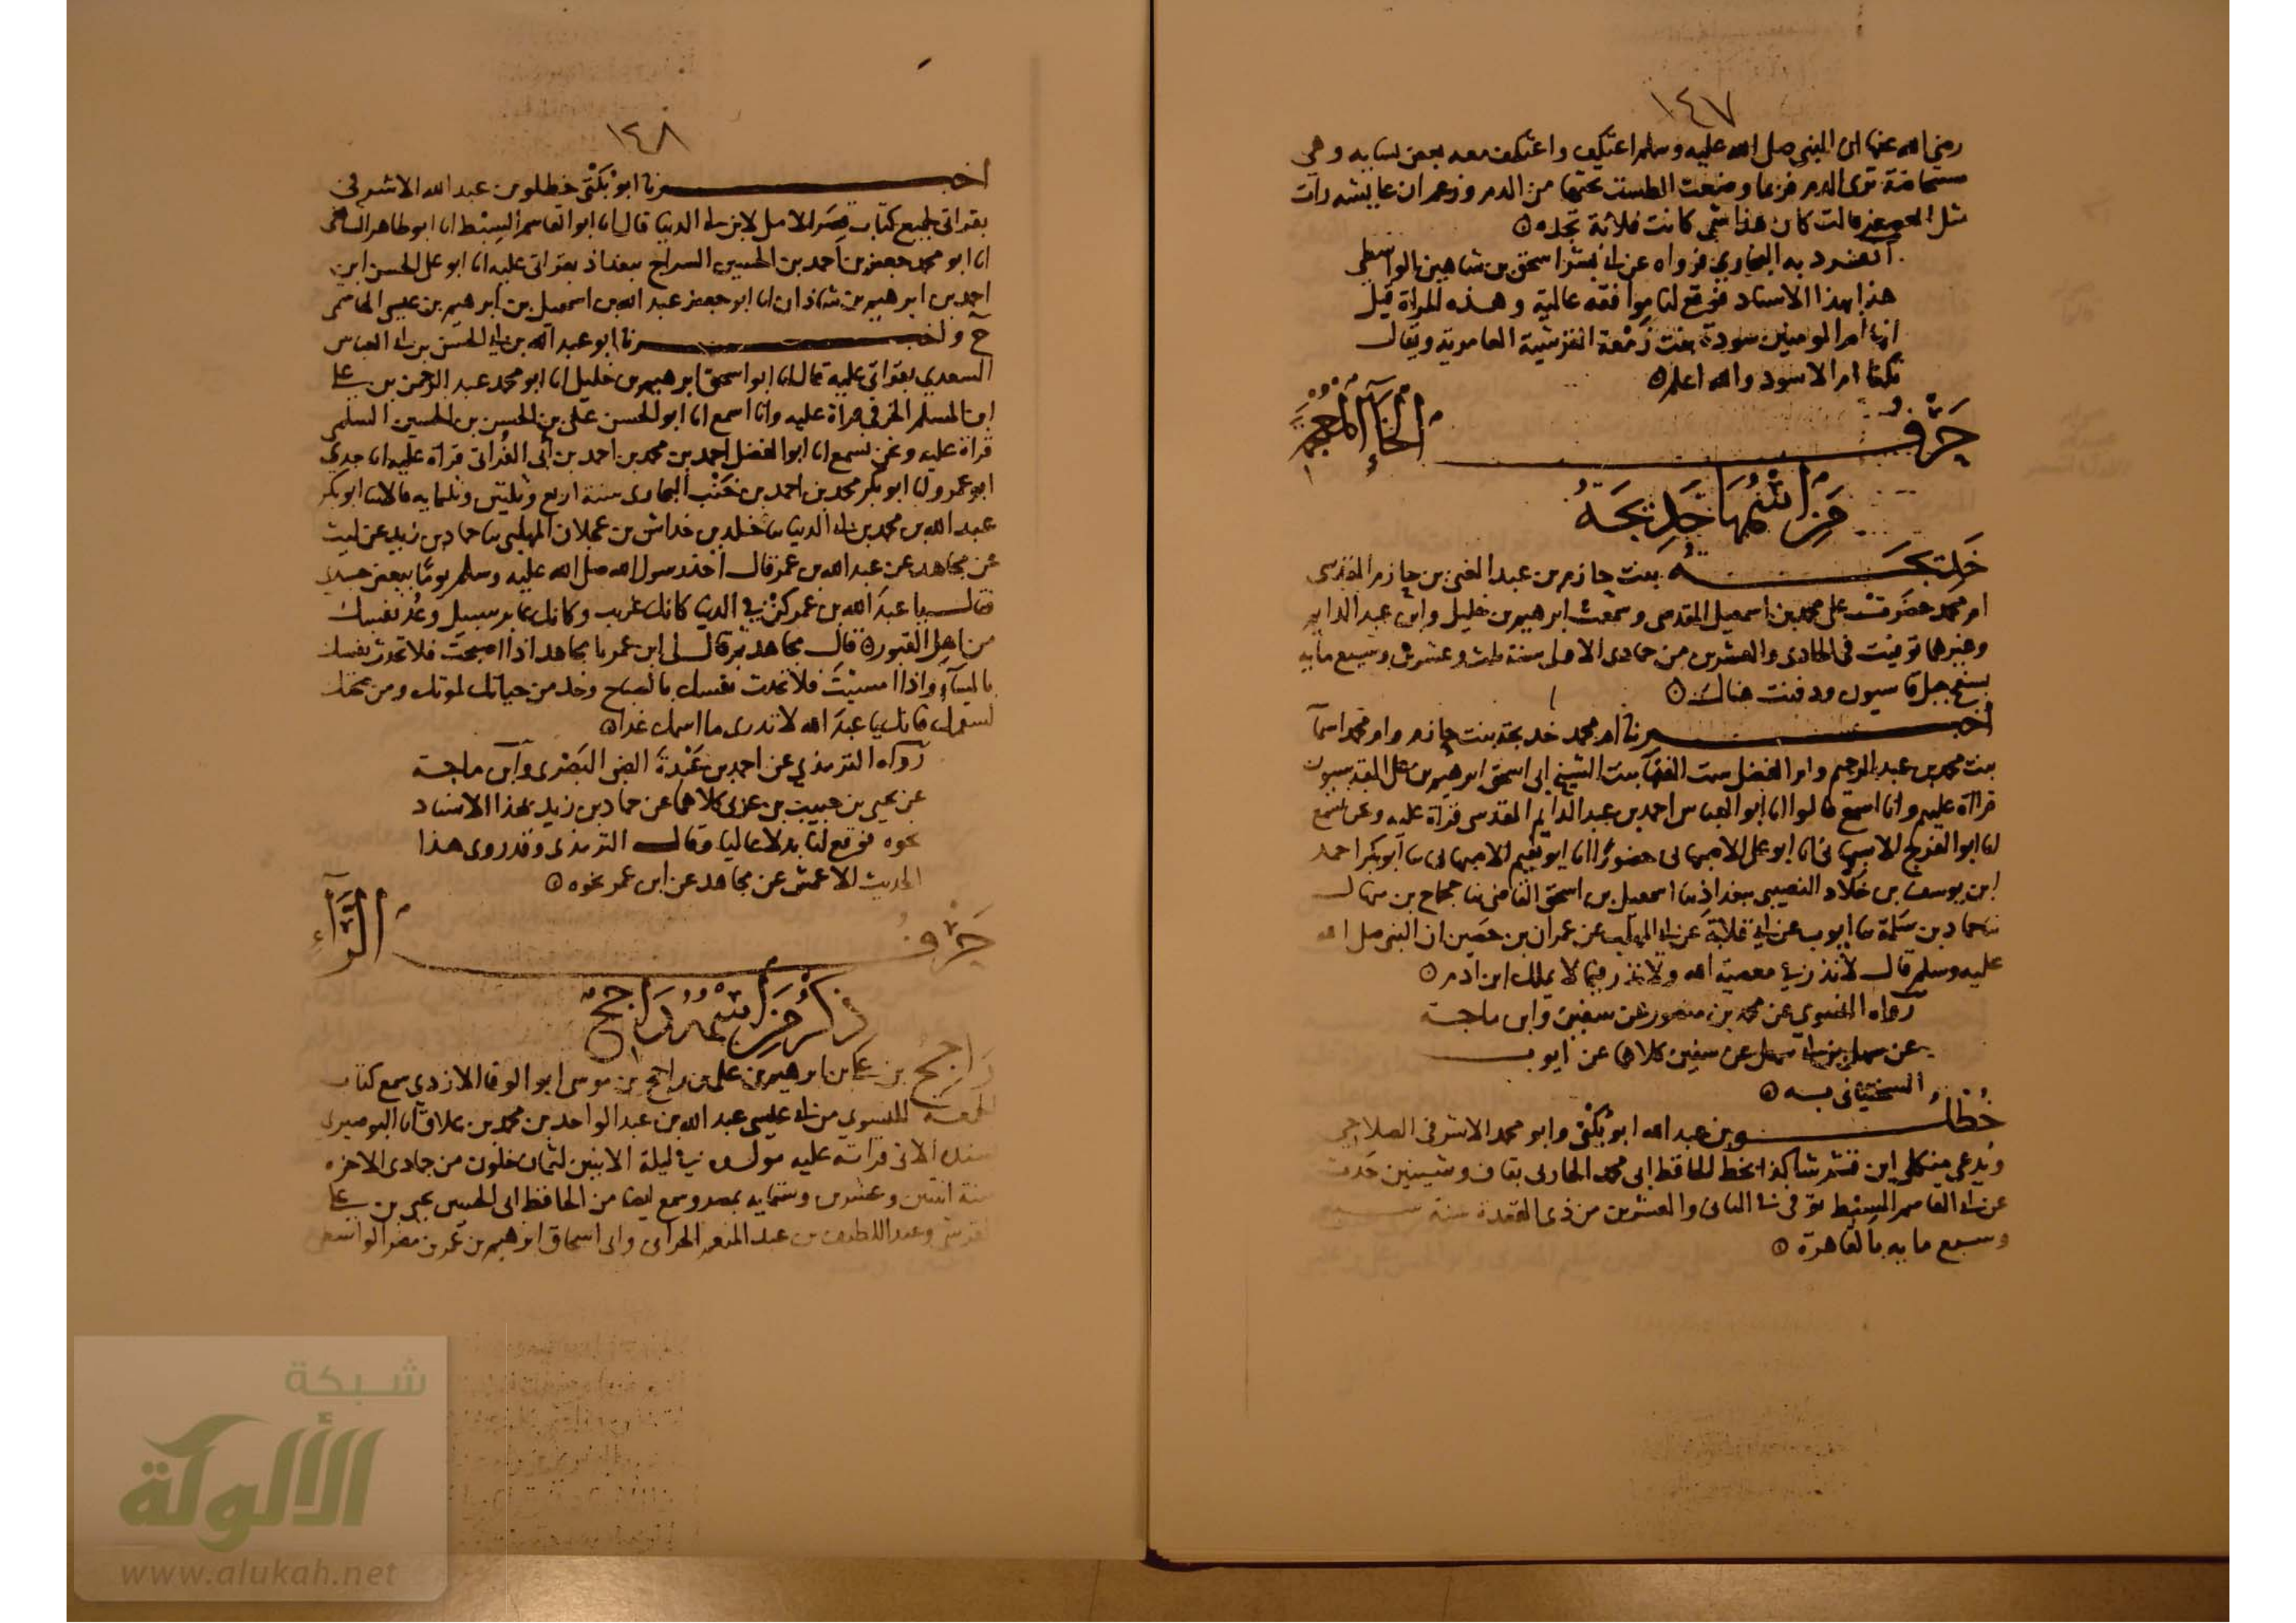 ١٤٧
رضي الله عنها ان النبي صلى الله عليه وسلم اعتكف واعتكف معه بعض نسايه وهي
مستحاضة ترى الدم فربما وضعت الطست تحتها من الدم وزعم ان عايشه رات
مثل العصفر فقالت كان هذا شي كانت فلانة تجده
انفرد به البخاري فرواه عن ابي بشر اسحق بن شاهين الواسطي
هذا بهذا الاسناد فوقع لنا موافقه عالية وهذه المراة قيل
انها ام المومنين سودة بنت زمعة القرشية العامرية ويقال
تكنا ام الاسود والله اعلم
حرف الخاء المعجمة
من اسمها خديجة
خديجة بنت حازم بن عبد الغني بن حازم المقدسي
ام محمد حضرت على محمد بن اسمعيل المقدسي وسمعت ابرهيم بن خليل وابن عبد الدايم
وغيرهما توفيت في الحادي والعشرين من جمادى الاولى سنة ثلث وعشرين وسبع مايه
بسفح جبل قاسيون ودفنت هناك
اخبرنا ام محمد خديجة بنت حازم وام محمد اسما
بنت محمد بن عبد الرحيم وام الفضل ست الفقها بنت الشيخ ابي اسحق ابرهيم بن علي المقدسيون
قراة عليهم وانا اسمع قالوا انا ابو العباس احمد بن عبد الدايم المقدسي قراة عليه ونحن نسمع
انا ابو الفرج انا ابو علي الاصبهاني حضورا انا ابو نعيم الاصبهاني نا ابو بكر احمد
ابن يوسف بن خلاد النصيبي ببغداذ نا اسمعيل بن اسحق القاضي نا حجاج بن منهال
نا حماد بن سلمة نا ايوب عن ابي قلابة عن ابي المهلب عن عمران بن حصين ان النبي صلى الله
عليه وسلم قال لا نذر في معصية الله ولا نذر فيما لا يملك ابن ادم
رواه النسوي عن محمد بن منصور عن سفين وابن ماجة
عن سهل بن ابي سهل عن سفين كلاهما عن ايوب
السختياني به
خطلو بن عبد الله ابو بكتى وابو محمد الاشرفي الصلاحي
ويدعى منكلي ابن كذا بخط الحافظ ابي محمد الحارثي بقاف وشينين حدث
عن ابي القاسم السبط توفي في الثاني والعشرين من ذي القعدة سنة سبع
وسبع مايه بالقاهرة
١٤٨
اخبرنا ابو بكتى خطلو بن عبد الله الاشرفي
بقراتي لجميع كتاب قصر الامل لابن ابي الدنيا قال انا ابو القاسم السبط انا ابو طاهر السلفي
انا ابو محمد جعفر بن احمد بن الحسين السراج ببغداذ بقراتي عليه انا ابو علي الحسن ابن
احمد بن ابرهيم بن شاذان انا ابو جعفر عبد الله بن اسمعيل بن ابرهيم بن عيسى الهاشمي
ح واخبرنا ابو عبد الله بن ابي الحسن بن ابي العباس
السعدي بقراتي عليه قال انا ابو اسحق ابرهيم بن خليل انا ابو محمد عبد الرحمن بن علي
ابن المسلم الخرقي قراة عليه وانا اسمع انا ابو الحسن علي بن الحسن بن الحسين السلمي
قراة عليه ونحن نسمع انا ابو الفضل احمد بن محمد بن احمد بن ابي الفراتي قراة عليه انا جدي
ابو عمرو انا ابو بكر محمد بن احمد بن خنب البخاري سنة اربع وثلثين وثلثمايه قالا نا ابو بكر
عبد الله بن محمد بن ابي الدنيا نا خلد بن خداش بن عجلان المهلبي نا حماد بن زيد عن ليث
عن مجاهد عن عبد الله بن عمر قال اخذ رسول الله صلى الله عليه وسلم يوما ببعض جسدي
فقال يا عبد الله بن عمر كن في الدنيا كانك غريب وكانك عابر سبيل وعد نفسك
من اهل القبور قال مجاهد ثم قال لي ابن عمر يا مجاهد اذا اصبحت فلا تحدث نفسك
بالمساء واذا امسيت فلا تحدث نفسك بالصباح وخذ من حياتك لموتك ومن صحتك
لسقمك فانك يا عبد الله لا تدري ما اسمك غدا
رواه الترمذي عن احمد بن عبدة الضبي البصري وابن ماجة
عن يحيى بن حبيب بن عربي كلاهما عن حماد بن زيد بهذا الاسناد
نحوه فوقع لنا بدلا عاليا وقال الترمذي وقد روى هذا
الحديث الاعمش عن مجاهد عن ابن عمر نحوه
حرف الراء
ذكر من اسمه راجح
راجح بن علي بن ابرهيم بن علي بن راجح بن موسى ابو الوفا الازدي سمع كتاب
الجمعة للنسوي من ابي عيسى عبد الله بن عبد الواحد بن محمد بن علاق انا البوصيري
بسنده الاتي قراته عليه مولده في ليلة الاثنين لثمان خلون من جمادى الاخره
سنة اثنتين وعشرين وستمايه بمصر وسمع ايضا من الحافظ ابي الحسين يحيى بن علي
القرشي وعبد اللطيف بن عبد المنعم الحراني وابي اسحاق ابرهيم بن عمر بن مضر الواسطي
شبكة
الألوكة
www.alukah.net